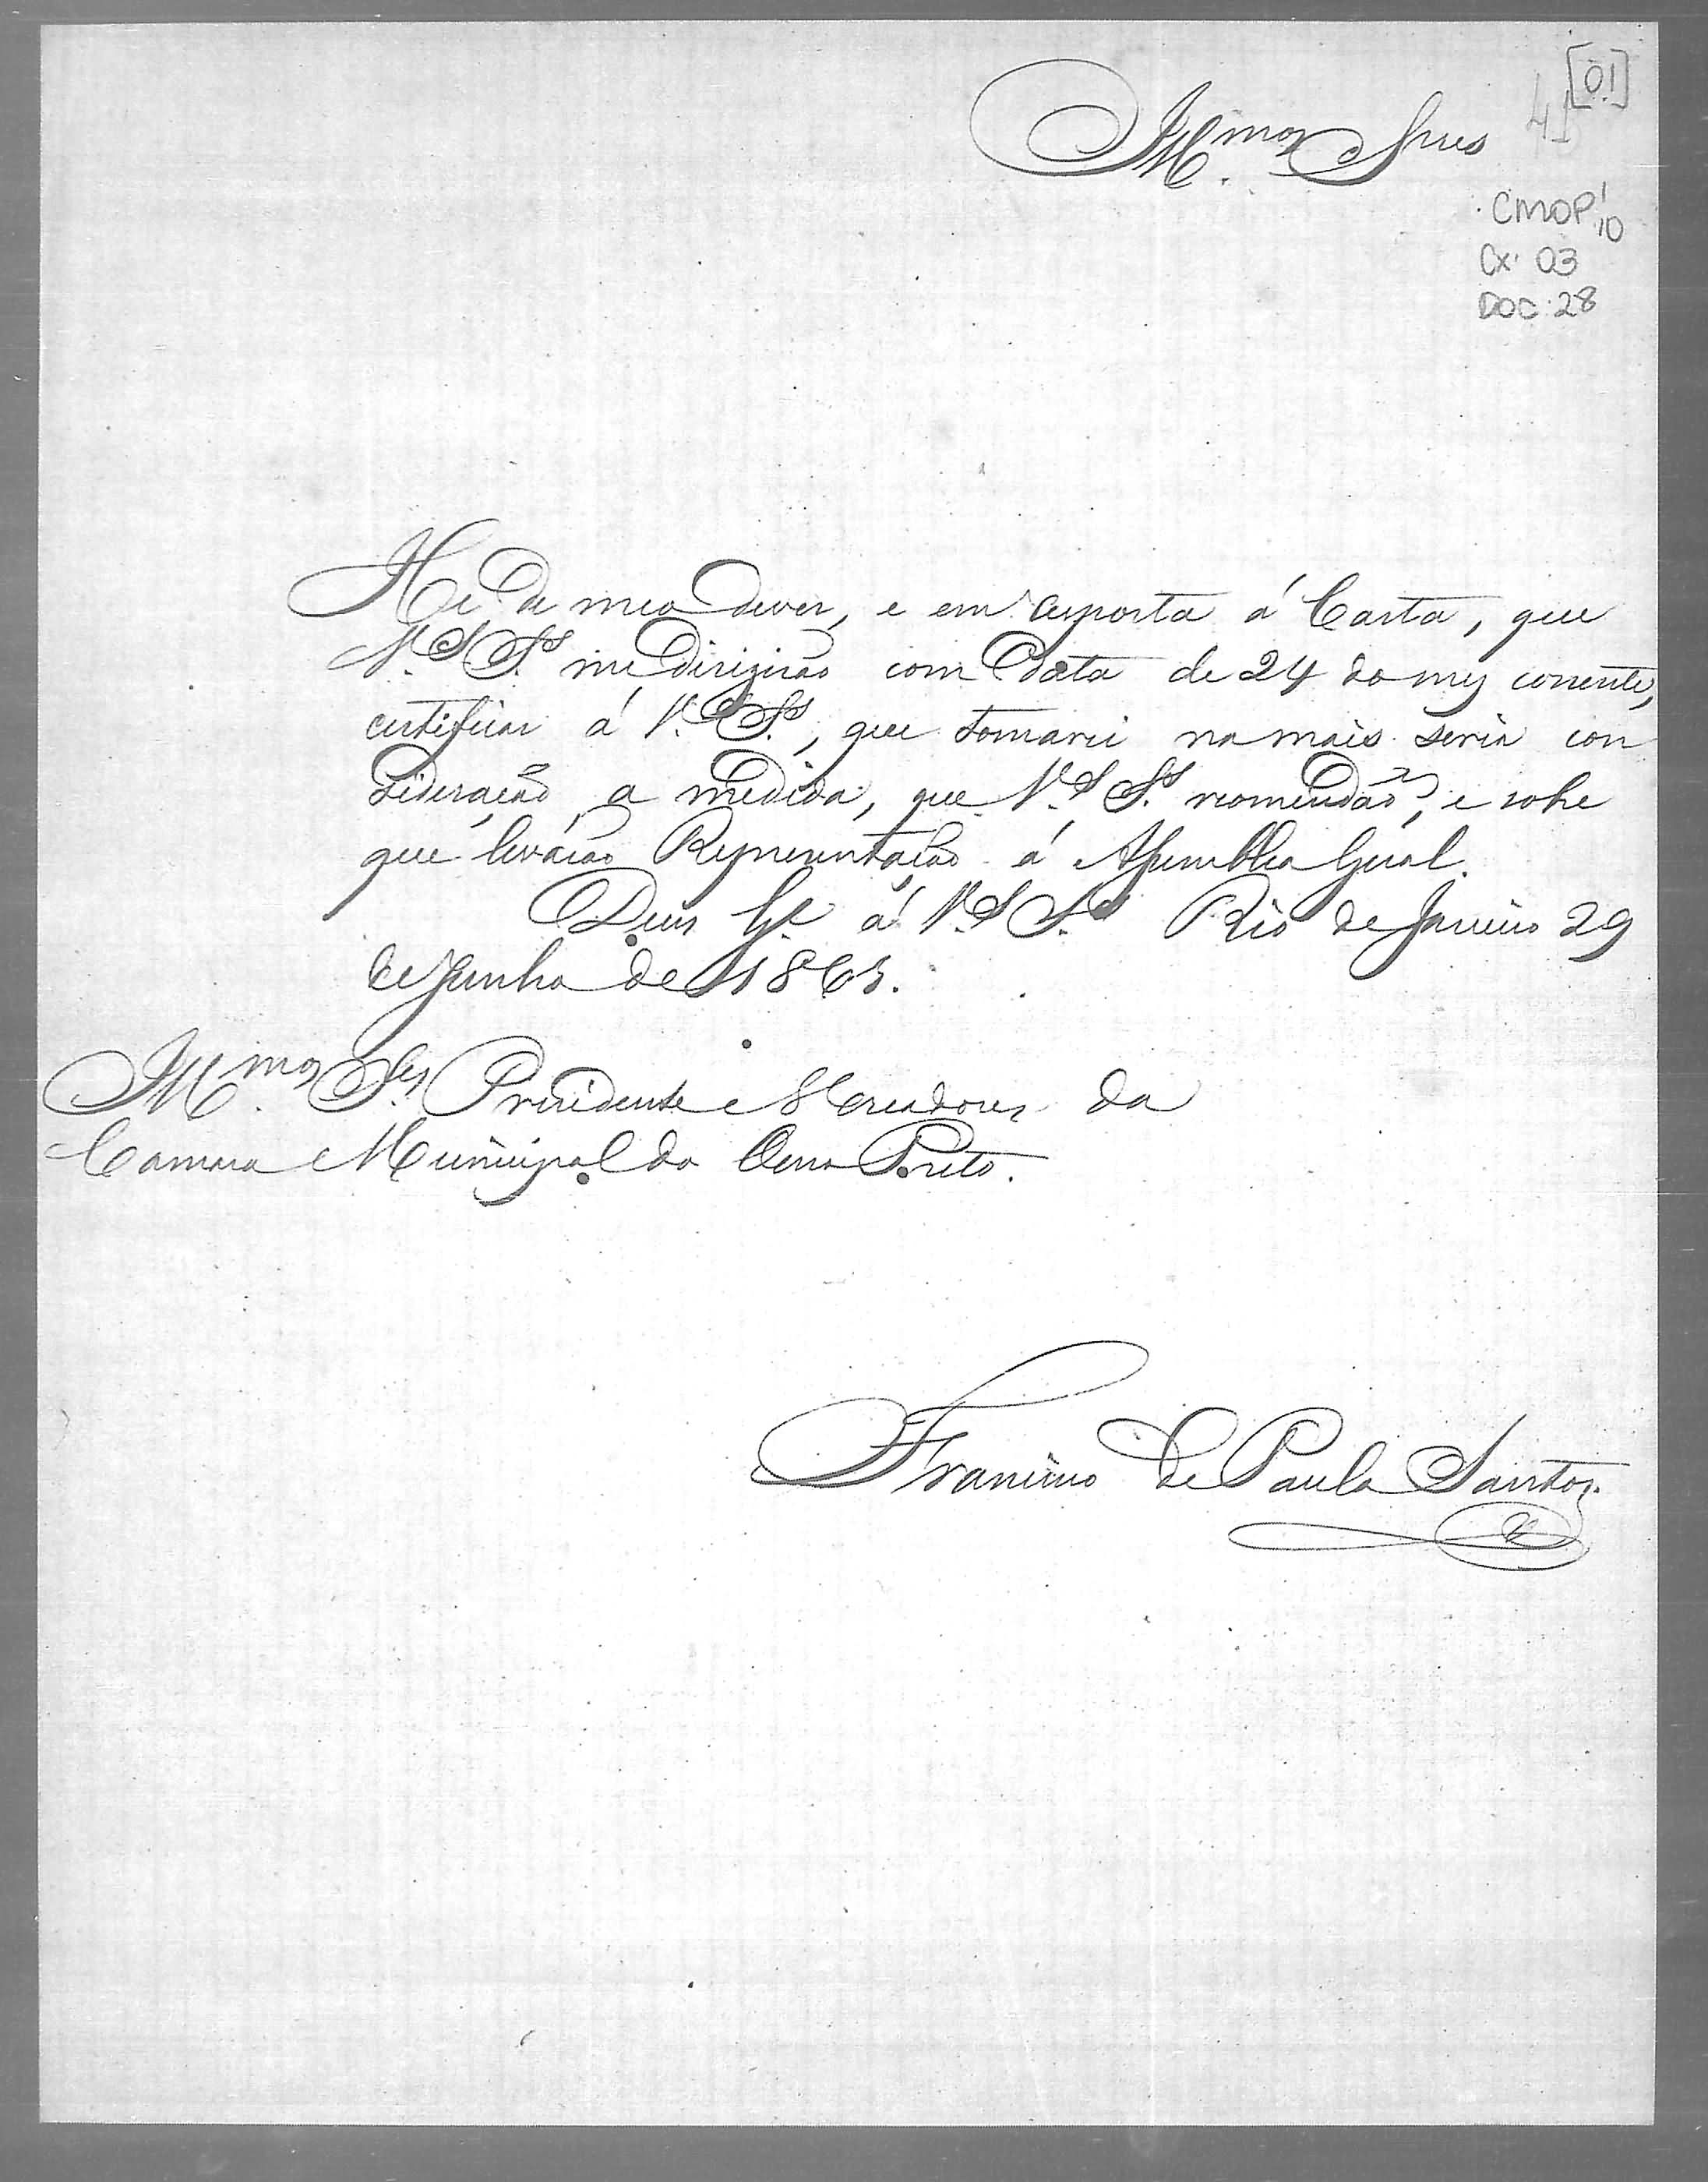 [01]
41
Illmos Snres
CMOP 1/10
Cx. 03
DOC. 28
He de meo dever, e em resposta á Carta, que
V.S Sas me dirigirão com data de 24 do mez corrente,
certificar á V.S Sas, que tomarei na mais seria con
sideração, a medida, que V.S Sas recomendão, e sobre
que levárão Reprezentação á Assemblea Geral.
Deus Ge á V.S Sas Rio de Janeiro 29
de Junho de
Illmos Srs Prezidente e Vereadores da
Camara Municipal do Ouro Preto.
Francisco de Paula Santos.